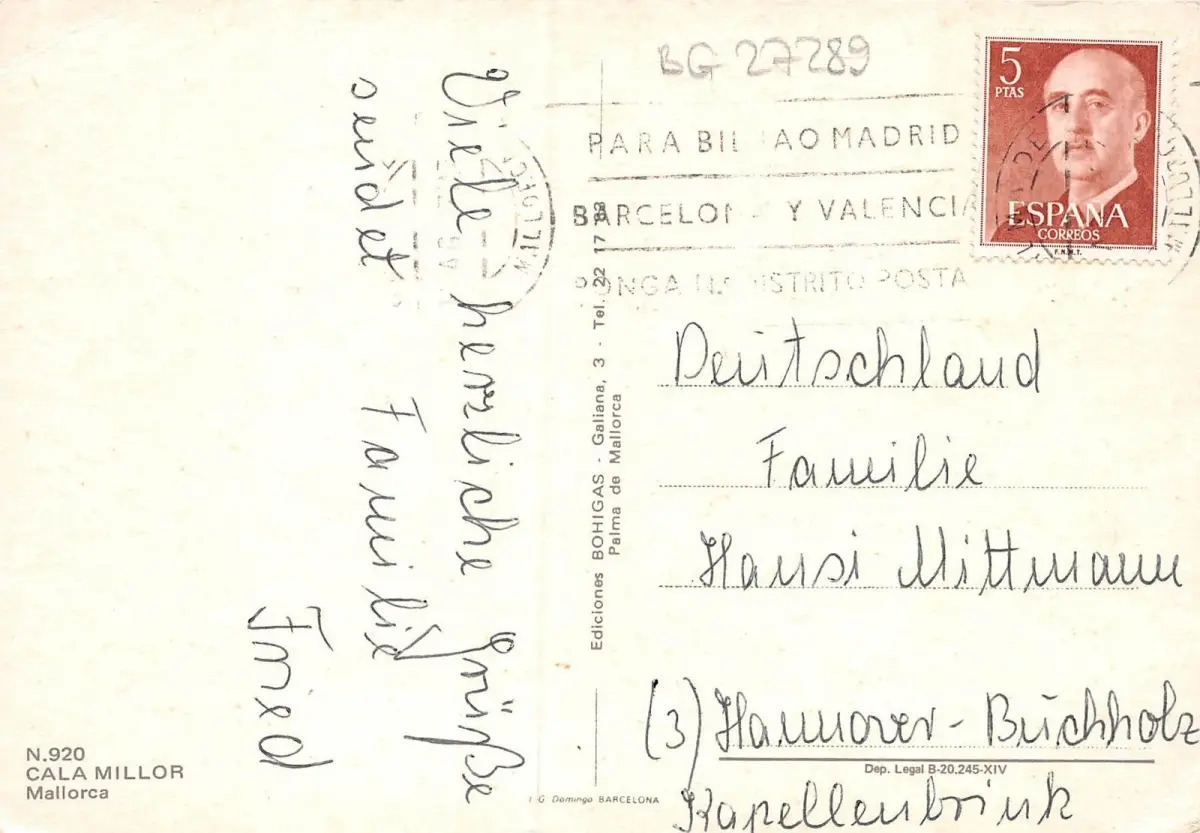 BG 27289
5
PTAS
ESPAÑA
CORREOS
F.N.M.T.
PARA BIL AO MADRID
BARCELON Y VALENCIA
PONGA DISTRITO POSTA
Viele herzliche Grüße
sendet Familie
Fried
Deutschland
Familie
Hansi Mittmann
(3) Hannover-Buchholz
Kapellenbrink
Ediciones BOHIGAS - Galiana, 3 - Tel. 22 17 98
Palma de Mallorca
N.920
CALA MILLOR
Mallorca
Dep. Legal B-20.245-XIV
I G Domingo BARCELONA